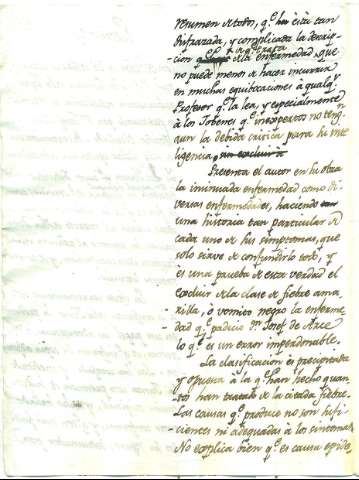 resumen de todo, q.e ha cita tan
disfrazada, y complicada la descrip-
-cion de q.e trata de la enfermedad, que
no puede menos de hacer incurrir
en muchas equibocaciones à qualq.r
Profesor q.e la lea, y especialmente
à los Jobenes q.e inexpertos no teng.n
aun la debida critica para su inte
ligencia, sin excluir à
Presenta el autor en su obra
la insinuada enfermedad como di-
versas enfermedades, haciendo tan
una historia tan particular de
cada uno de sus symptomas, que
solo sirve de confundirlo todo, y
es una prueba de esta verdad el
excluir de la clase de fiebre ama-
rilla, ò vomito negro la enferme
dad q.e padecio D.n Josef de Arce
lo q.e es un error imperdonable.
La clasificacion es precipitada
y opuesta à la q.e han hecho quan-
-tos han tratado de la citada fiebre.
Las causas q.e produce no son sufi-
cientes ni adequadas à los sintomas
No explica bien q.e es causa epide